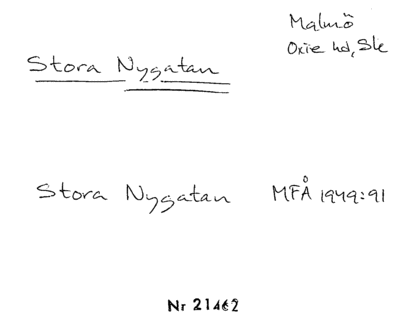 Malmö
Oxie hd, Sk
Stora Nygatan
Stora Nygatan MFÅ 1949:91
Nr 21462